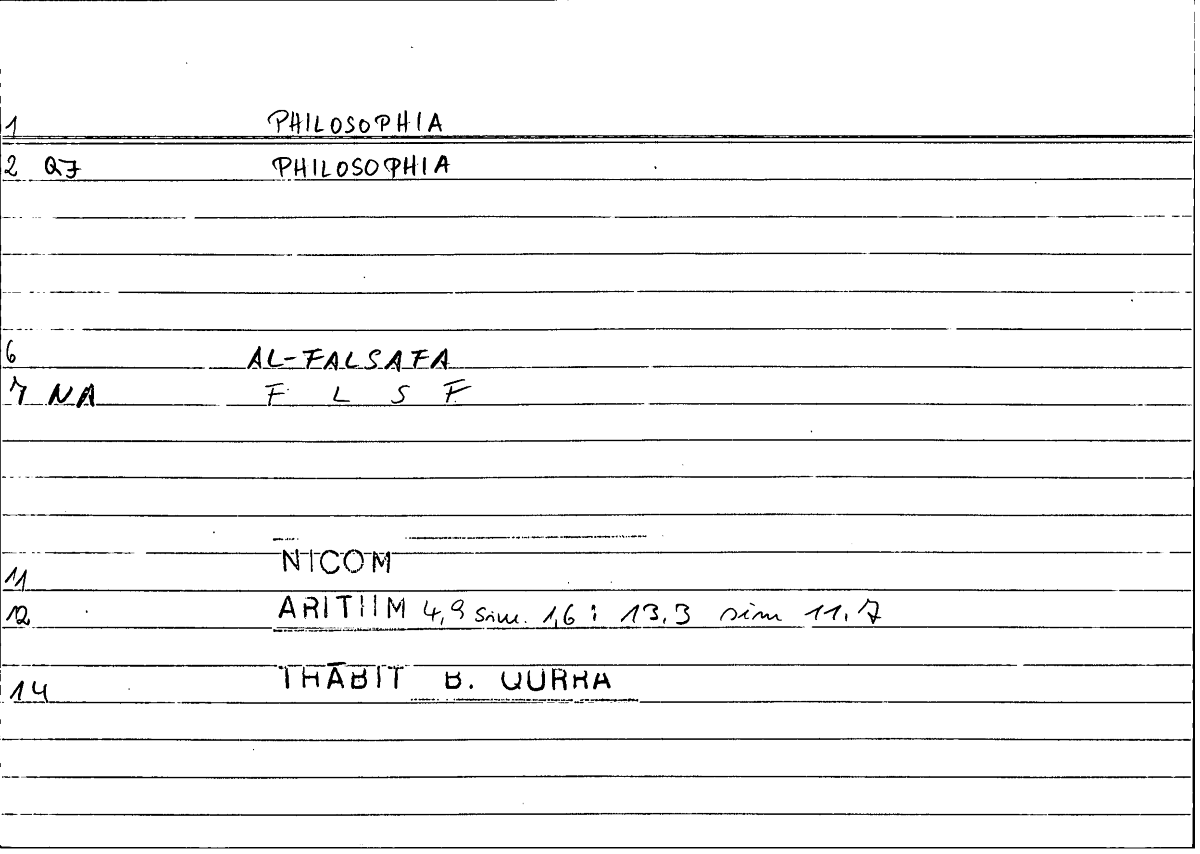 1 PHILOSOPHIA
2 QF PHILOSOPHIA
6 AL-FALSAFA
7 NA F L S F
11 NICOM
12 ARITHM 4,9 sim. 1,6; 13,3 sim 11,7
14 THĀBIT B. QURRA